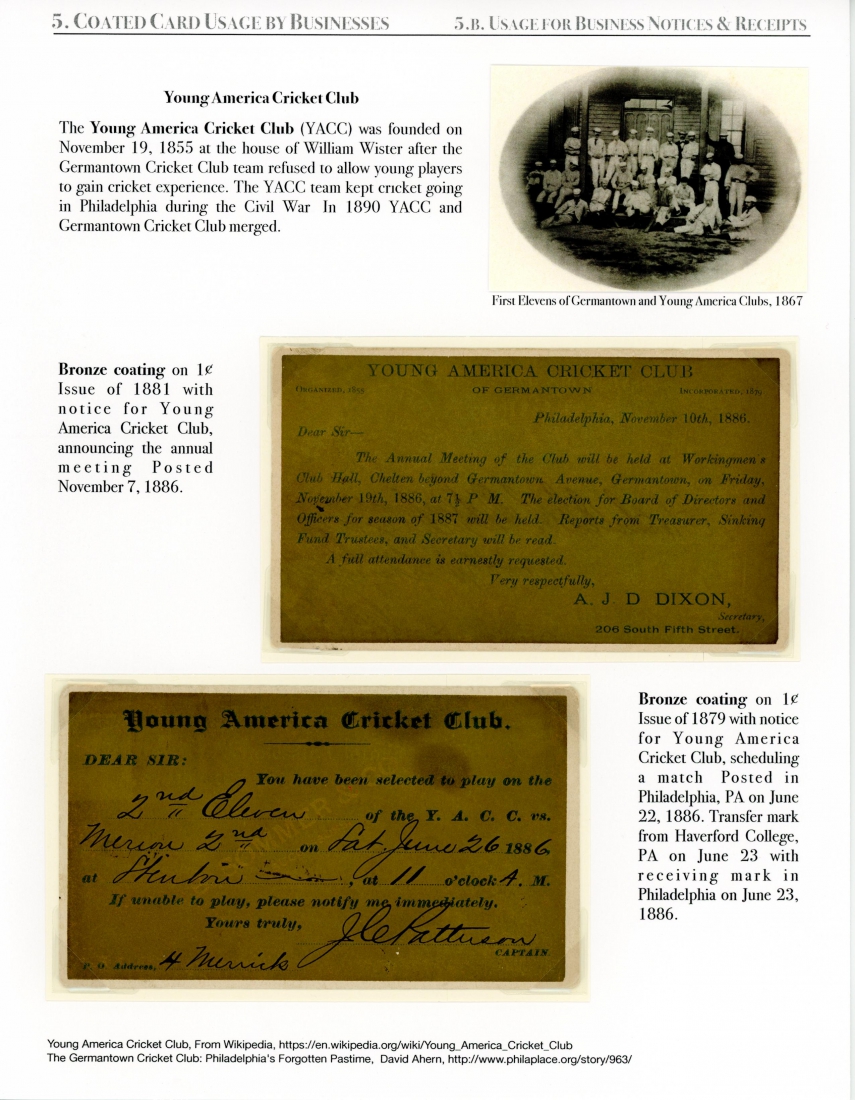 5. COATED CARD USAGE BY BUSINESSES
5.B. USAGE FOR BUSINESS NOTICES & RECEIPTS
Young America Cricket Club
The Young America Cricket Club (YACC) was founded on
November 19, 1855 at the house of William Wister after the
Germantown Cricket Club team refused to allow young players
to gain cricket experience. The YACC team kept cricket going
in Philadelphia during the Civil War In 1890 YACC and
Germantown Cricket Club merged.
First Elevens of Germantown and Young America Clubs, 1867
Bronze coating on 1¢
Issue of 1881 with
notice for Young
America Cricket Club,
announcing the annual
meeting Posted
November 7, 1886.
YOUNG AMERICA CRICKET CLUB
ORGANIZED, 1855 OF GERMANTOWN INCORPORATED, 1879
Philadelphia, November 10th, 1886.
Dear Sir—
The Annual Meeting of the Club will be held at Workingmen's
Club Hall, Chelten beyond Germantown Avenue, Germantown, on Friday,
November 19th, 1886, at 7½ P M. The election for Board of Directors and
Officers for season of 1887 will be held. Reports from Treasurer, Sinking
Fund Trustees, and Secretary will be read.
A full attendance is earnestly requested.
Very respectfully,
A. J D DIXON,
Secretary,
206 South Fifth Street.
Young America Cricket Club.
DEAR SIR:
You have been selected to play on the
2nd Eleven of the Y. A. C. C. vs.
Merion 2nd on Sat. June 26 1886
at Stenton, at 11 o'clock A. M.
If unable to play, please notify me immediately.
Yours truly,
J C Patterson
CAPTAIN.
P. O. Address, 4 Merrick
Bronze coating on 1¢
Issue of 1879 with notice
for Young America
Cricket Club, scheduling
a match Posted in
Philadelphia, PA on June
22, 1886. Transfer mark
from Haverford College,
PA on June 23 with
receiving mark in
Philadelphia on June 23,
1886.
Young America Cricket Club, From Wikipedia, https://en.wikipedia.org/wiki/Young_America_Cricket_Club
The Germantown Cricket Club: Philadelphia's Forgotten Pastime, David Ahern, http://www.philaplace.org/story/963/